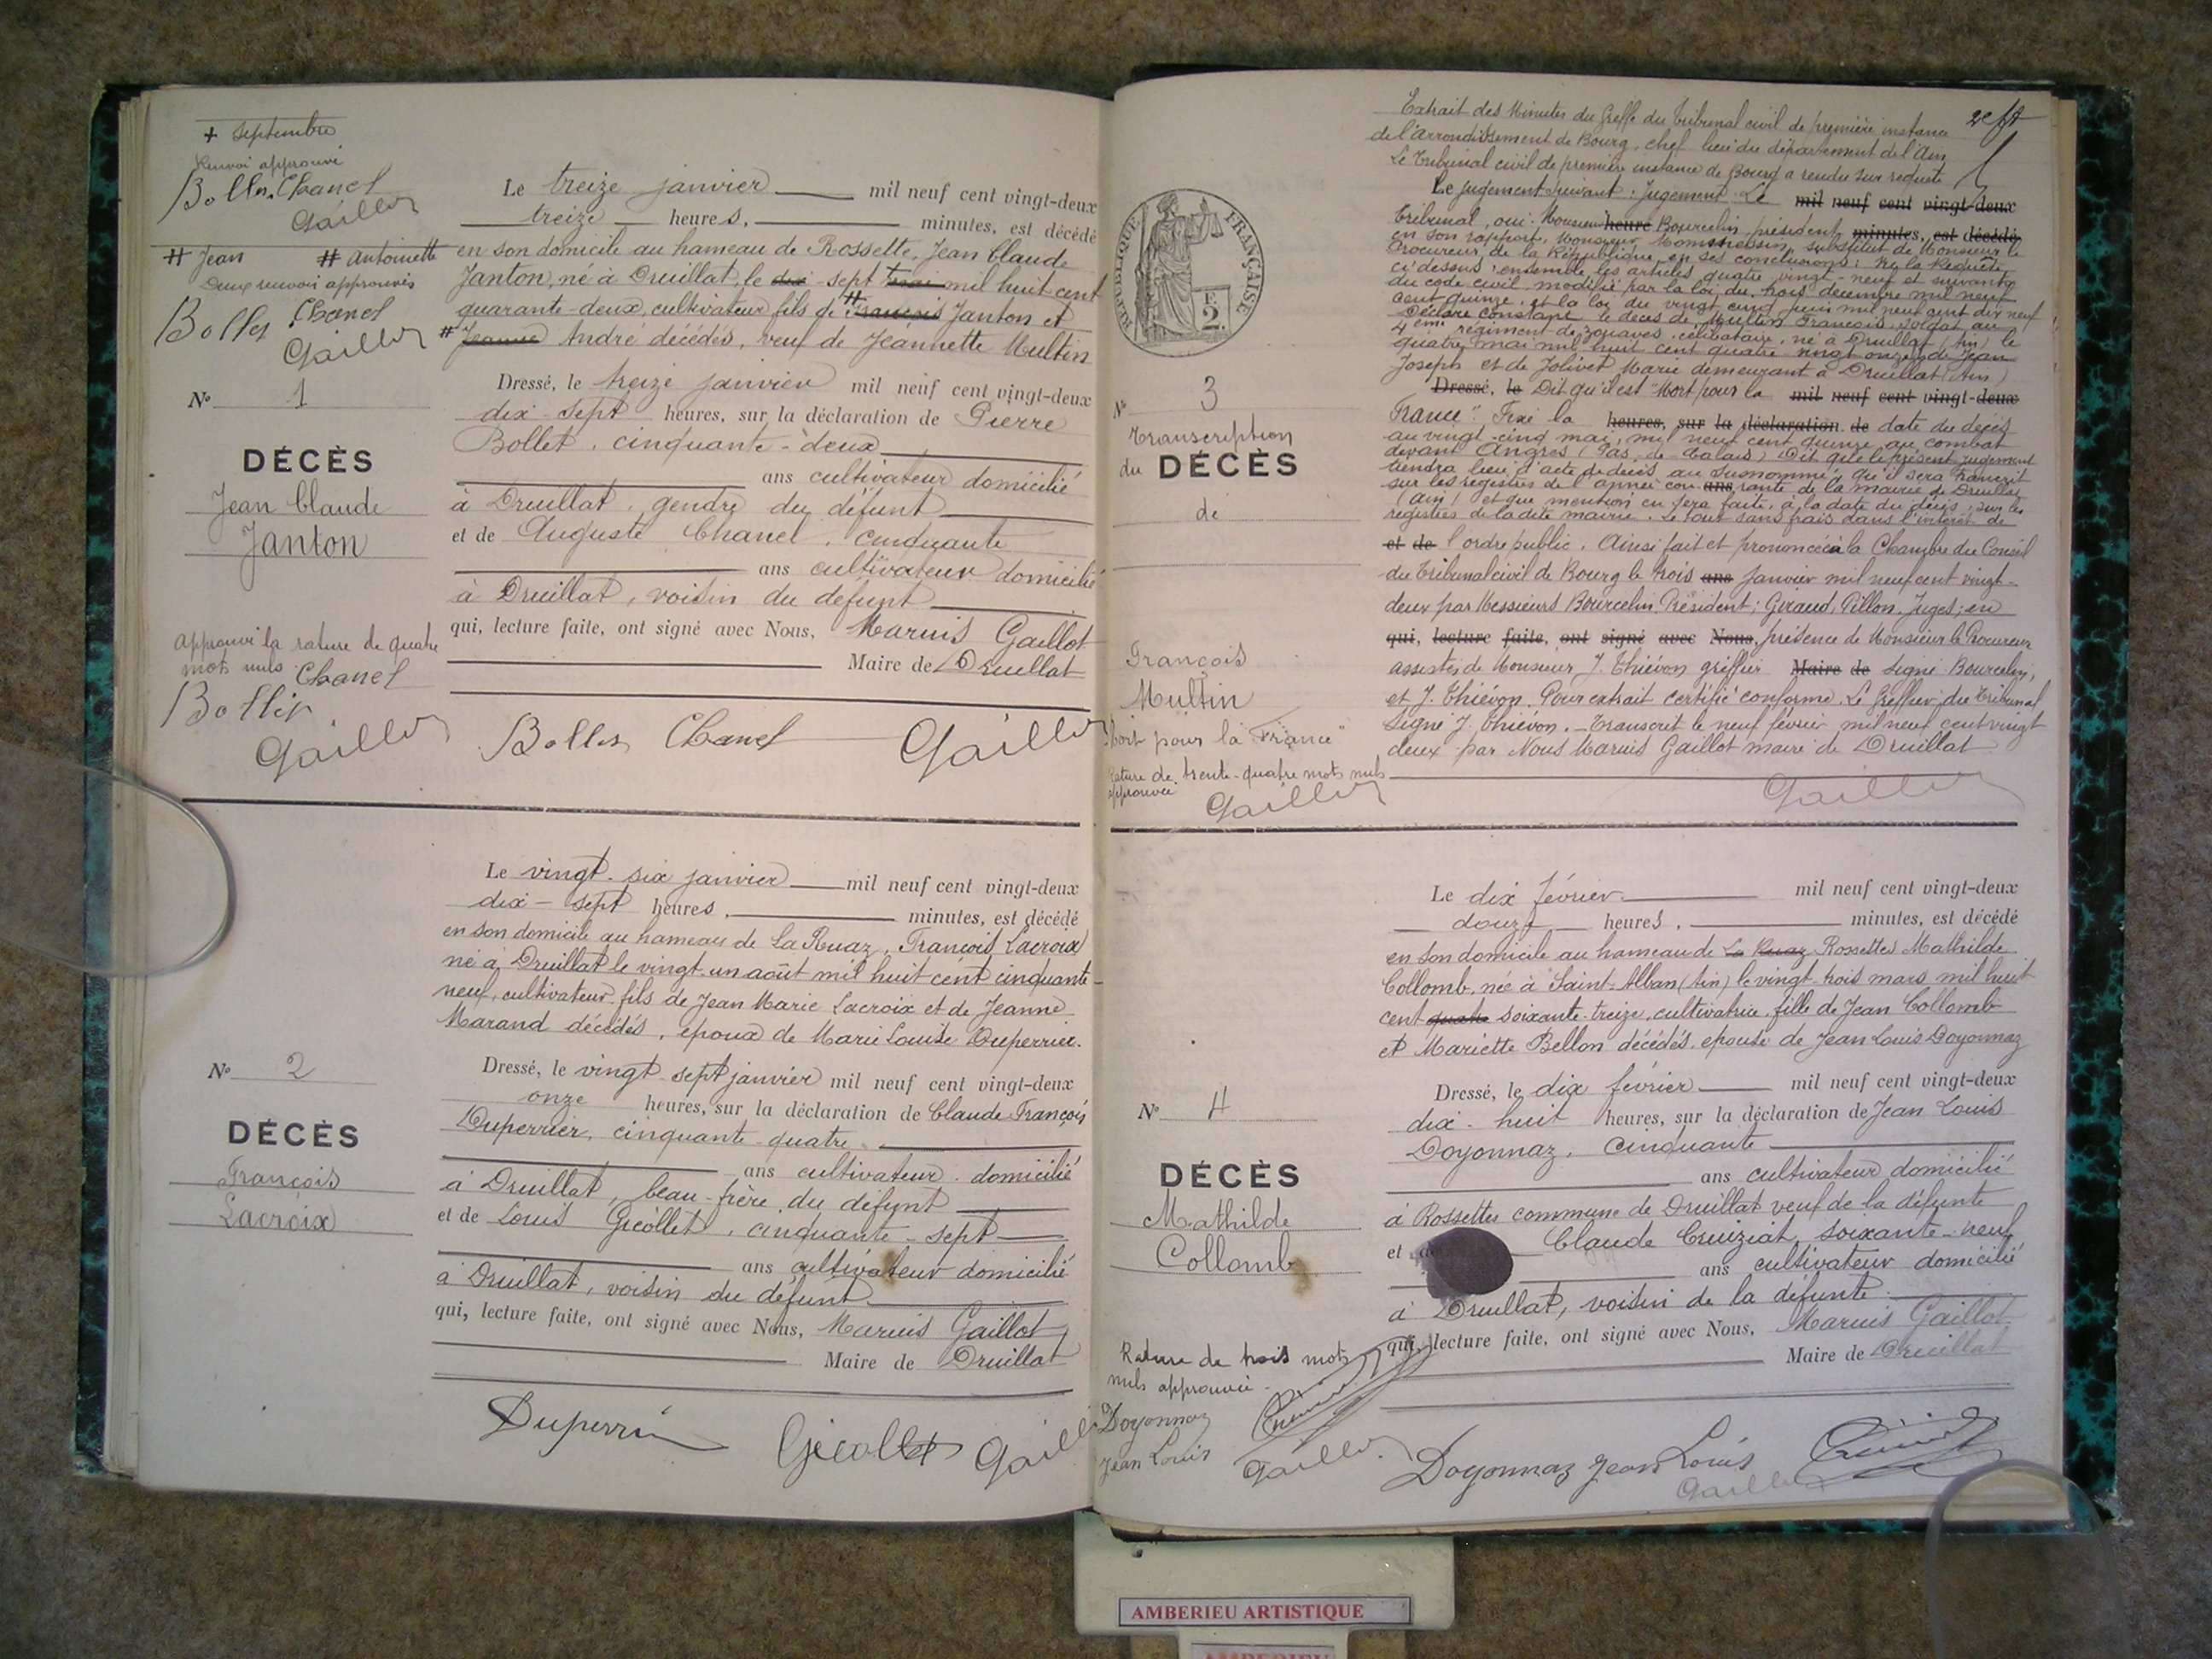 + Septembre
Renvoi approuvé
Bollet Chanel
Gaillot
# Jean # Antoinette
Deux renvois approuvés
Bollet Chanel
Gaillot
N° 1
DÉCÈS
Jean Claude
Janton
Approuvé la rature de quatre
mots nuls. Chanel
Bollet
Gaillot
Le treize janvier mil neuf cent vingt-deux
treize heures, minutes, est décédé
en son domicile au hameau de Rossette, Jean Claude
Janton, né à Druillat, le dix-sept mai mil huit cent
quarante-deux, cultivateur fils de # François Janton et
# Jeanne André décédés, veuf de Jeannette Multin
Dressé, le treize janvier mil neuf cent vingt-deux
dix-sept heures, sur la déclaration de Pierre
Bollet, cinquante-deux
ans cultivateur domicilié
à Druillat, gendre du défunt
et de Auguste Chanel, cinquante
ans cultivateur domicilié
à Druillat, voisin du défunt
qui, lecture faite, ont signé avec Nous, Marius Gaillot
Maire de Druillat
Bollet Chanel Gaillot
N° 2
DÉCÈS
François
Lacroix
Le vingt-six janvier mil neuf cent vingt-deux
dix-sept heures, minutes, est décédé
en son domicile au hameau de La Ruaz, François Lacroix
né à Druillat le vingt-un août mil huit cent cinquante-
neuf, cultivateur fils de Jean Marie Lacroix et de Jeanne
Marand décédés, époux de Marie Louise Duperrier.
Dressé, le vingt-sept janvier mil neuf cent vingt-deux
onze heures, sur la déclaration de Claude François
Duperrier, cinquante-quatre
ans cultivateur domicilié
à Druillat, beau-frère du défunt
et de Louis Gicollet, cinquante-sept
ans cultivateur domicilié
à Druillat, voisin du défunt
qui, lecture faite, ont signé avec Nous, Marius Gaillot
Maire de Druillat
Duperrier Gicollet Gaillot
RÉPUBLIQUE FRANÇAISE
2F.
N° 3
Transcription
du DÉCÈS
de
François
Multin
"Mort pour la France"
Rature de trente-quatre mots nuls
approuvée
Gaillot
Extrait des Minutes du Greffe du Tribunal civil de première instance
de l'arrondissement de Bourg, chef lieu du département de l'Ain
Le Tribunal civil de première instance de Bourg a rendu sur requête
Le jugement suivant : Jugement Le mil neuf cent vingt-deux
Tribunal, ouï Monsieur heure Bourcelin président minutes, est décédé
en son rapport, Monsieur substitut de Monsieur le
Procureur de la République en ses conclusions; Vu la Requête
ci dessus, ensemble les articles quatre vingt-neuf et suivants
du code civil modifié par la loi du trois décembre mil neuf
cent quinze et la loi du vingt cinq juin mil neuf cent dix neuf
Déclare constant le décès de Multin François, soldat au
4ème régiment de zouaves, célibataire, né à Druillat (Ain) le
quatre mai mil huit cent quatre vingt onze, de Jean
Joseph et de Jolivet Marie demeurant à Druillat (Ain)
Dressé, le Dit qu'il est "Mort pour la mil neuf cent vingt-deux
France". Fixe la heures, sur la déclaration de date du décès
au vingt-cinq mai, mil neuf cent quinze, au combat
devant Angres (Pas-de-Calais) Dit que le présent jugement
tiendra lieu d'acte de décès au susnommé, qu'il sera transcrit
sur les registres de l'année cou ans rante de la mairie de Druillat
(Ain) et que mention en sera faite, à la date du décès, sur les
registres de la dite mairie. Le tout sans frais dans l'intérêt de
et de l'ordre public. Ainsi fait et prononcé à la Chambre du Conseil
du Tribunal civil de Bourg le trois ans janvier mil neuf cent vingt-
deux par Messieurs Bourcelin, Président; Giraud, Pillon, Juges; en
qui, lecture faite, ont signé avec Nous, présence de Monsieur le Procureur
assistés de Monsieur J. Thiévon greffier Maire de Signé Bourcelin,
et J. Thiévon. Pour extrait certifié conforme. Le Greffier du Tribunal
Signé J. Thiévon. - Transcrit le neuf février mil neuf cent vingt
deux par Nous Marius Gaillot maire de Druillat
Gaillot
N° 4
DÉCÈS
Mathilde
Collomb
Rature de trois mots
nuls approuvée.
Doyonnaz
Jean Louis
Gaillot
Le dix février mil neuf cent vingt-deux
douze heures, minutes, est décédé
en son domicile au hameau de La Ruaz Rossettes Mathilde
Collomb, née à Saint-Alban (Ain) le vingt-trois mars mil huit
cent quatre soixante-treize, cultivatrice, fille de Jean Collomb
et Mariette Bellon décédés, épouse de Jean Louis Doyonnaz
Dressé, le dix février mil neuf cent vingt-deux
dix-huit heures, sur la déclaration de Jean Louis
Doyonnaz, cinquante
ans cultivateur domicilié
à Rossettes commune de Druillat veuf de la défunte
et de Claude Cruiziat, soixante-neuf
ans cultivateur domicilié
à Druillat, voisin de la défunte
qui, lecture faite, ont signé avec Nous, Marius Gaillot
Maire de Druillat
Doyonnaz Jean Louis
Gaillot
AMBERIEU ARTISTIQUE
AMBERIEU